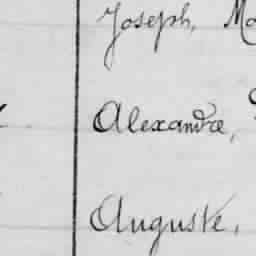 Joseph, Ma
Alexandre,
Auguste,